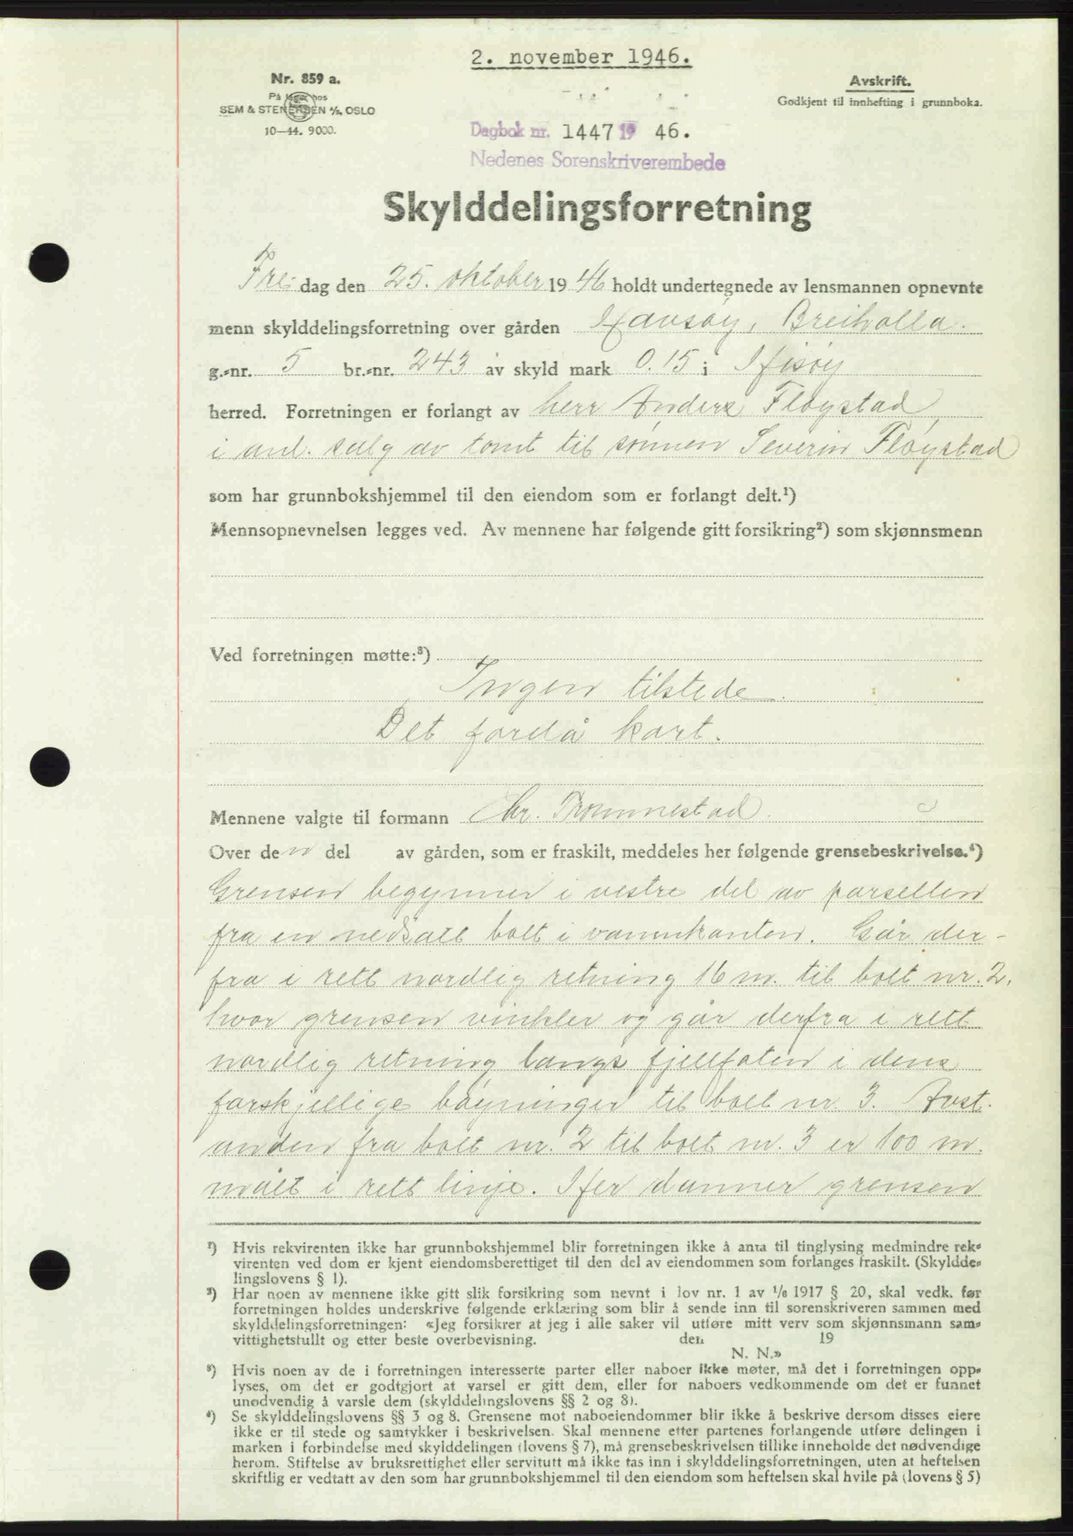 2. november 1946.
Nr. 859 a.
På lager hos
SEM & STENERSEN A/S, OSLO
10—44. 9000.
Avskrift.
Godkjent til innhefting i grunnboka.
Dagbok nr. 1447 19 46.
Nedenes Sorenskriverembede
Skylddelingsforretning
Fre dag den 25. oktober 19 46 holdt undertegnede av lensmannen opnevnte
menn skylddelingsforretning over gården Havsøy, Breiholla.
g.-nr. 5 br.-nr. 243 av skyld mark 0.15 i Hisøy
herred. Forretningen er forlangt av herr Anders Fløystad
i anl. salg av tomt til sønnen Severin Fløystad
som har grunnbokshjemmel til den eiendom som er forlangt delt.¹)
Mennsopnevnelsen legges ved. Av mennene har følgende gitt forsikring²) som skjønnsmenn
Ved forretningen møtte:³)
Ingen tilstede.
Det fordå kart.
Mennene valgte til formann Chr. Trommestad.
Over de n del av gården, som er fraskilt, meddeles her følgende grensebeskrivelse.⁴)
Grensen begynner i vestre del av parsellen
fra en nedsatt bolt i vannkanten. Går der-
fra i rett nordlig retning 16 m. til bolt nr. 2,
hvor grensen vinkler og går derfra i rett
nordlig retning langs fjellfoten i dens
forskjellige bøyninger til bolt nr. 3. Avst-
anden fra bolt nr. 2 til bolt nr. 3 er 100 m.
målt i rett linje. Her danner grensen
¹) Hvis rekvirenten ikke har grunnbokshjemmel blir forretningen ikke å anta til tinglysing medmindre rek-
virenten ved dom er kjent eiendomsberettiget til den del av eiendommen som forlanges fraskilt. (Skyldde-
lingslovens § 1).
²) Har noen av mennene ikke gitt slik forsikring som nevnt i lov nr. 1 av 1/6 1917 § 20, skal vedk. før
forretningen holdes underskrive følgende erklæring som blir å sende inn til sorenskriveren sammen med
skylddelingsforretningen: «Jeg forsikrer at jeg i alle saker vil utføre mitt verv som skjønnsmann sam-
vittighetstullt og etter beste overbevisning. den 19
N. N.»
³) Hvis noen av de i forretningen interesserte parter eller naboer ikke møter, må det i forretningen opp-
lyses, om det er godtgjort at varsel er gitt dem, eller for naboers vedkommende om det er funnet
unødvendig å varsle dem (skylddelingslovens §§ 2 og 8).
⁴) Se skylddelingslovens §§ 3 og 8. Grensene mot naboeiendommer blir ikke å beskrive dersom disses eiere
ikke er til stede og samtykker i beskrivelsen. Skal mennene etter partenes forlangende utføre delingen i
marken i forbindelse med skylddelingen (lovens § 7), må grensebeskrivelsen tillike inneholde det nødvendige
herom. Stiftelse av bruksrettighet eller servitutt må ikke tas inn i skylddelingsforretningen, uten at heftelsen
skriftlig er vedtatt av den som har grunnbokshjemmel til den eiendom som heftelsen skal hvile på (lovens § 5)